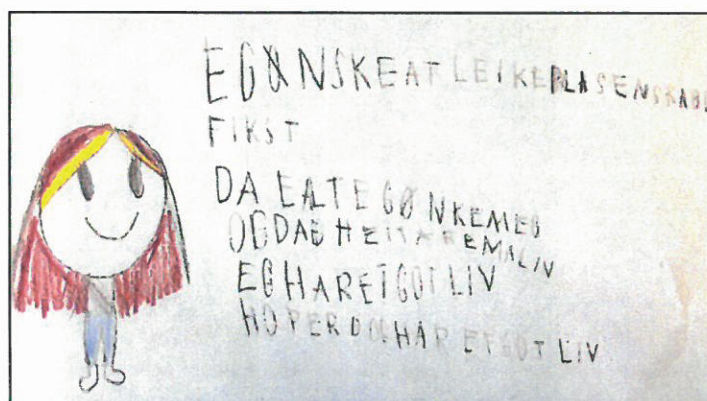 EGØNSKEAT LEIKEPLASENSKABL
FIKST
DA EALTEGØNKEMEG
OG DAE HEITAREMALIV
EGHARETGOTLIV
HOPERDU HAR ETGOT LIV